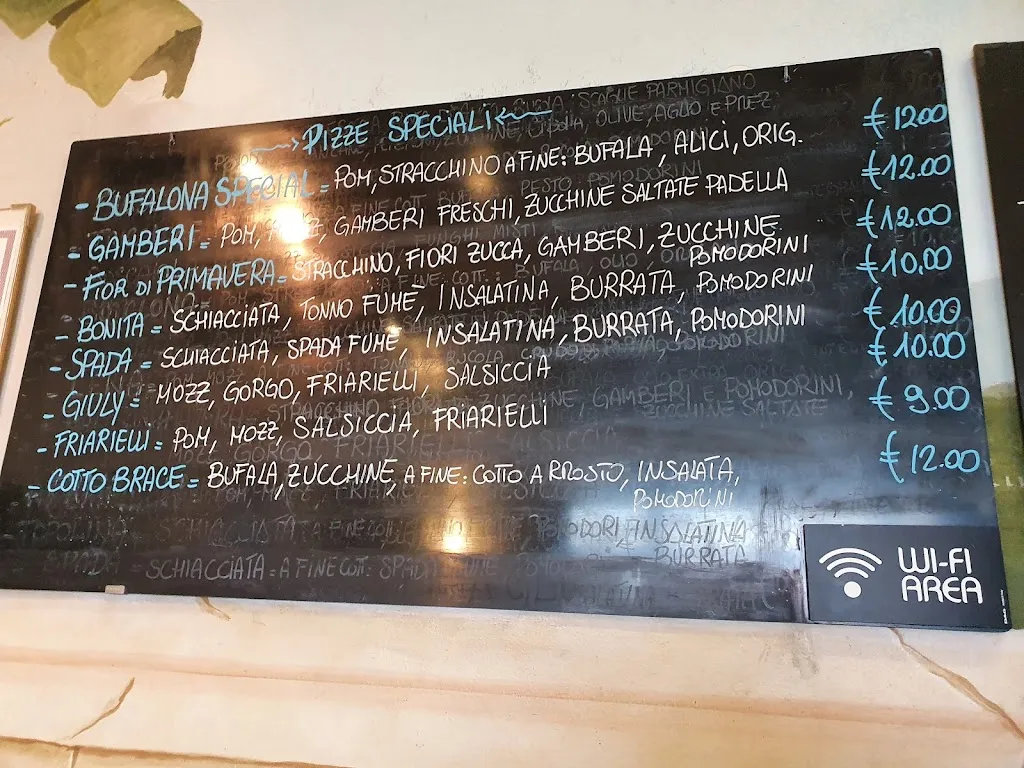 PIZZE SPECIALI
- BUFALONA SPECIAL = POM, STRACCHINO A FINE: BUFALA, ALICI, ORIG. € 12.00
- GAMBERI = POM, MOZZ, GAMBERI FRESCHI, ZUCCHINE SALTATE PADELLA € 12.00
- FIOR DI PRIMAVERA = STRACCHINO, FIORI ZUCCA, GAMBERI, ZUCCHINE. € 12.00
POMODORINI
- BONITA = SCHIACCIATA, TONNO FUMÈ, INSALATINA, BURRATA, POMODORINI € 10,00
- SPADA = SCHIACCIATA, SPADA FUMÈ, INSALATINA, BURRATA, POMODORINI € 10.00
- GIULY = MOZZ, GORGO, FRIARIELLI, SALSICCIA € 10.00
- FRIARIELLI = POM, MOZZ, SALSICCIA, FRIARIELLI € 9.00
- COTTO BRACE = BUFALA, ZUCCHINE, A FINE: COTTO ARROSTO, INSALATA, € 12.00
POMODORINI
WI-FI
AREA